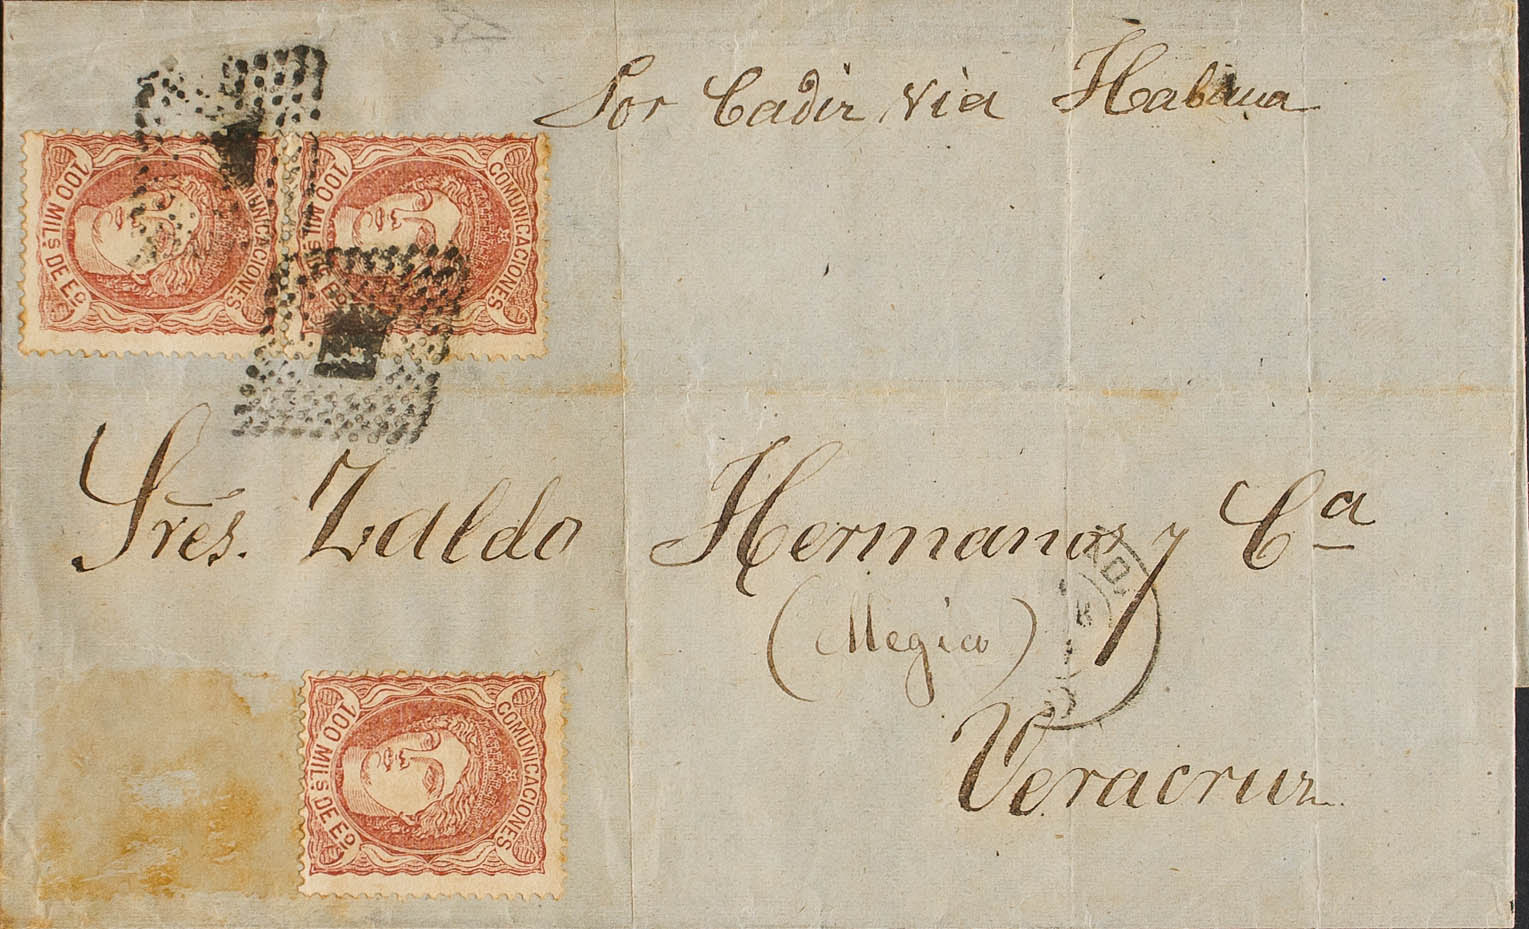 Por Cadiz via Habana
COMUNICACIONES
100 MILs. DE Eo.
COMUNICACIONES
100 MILs. DE Eo.
Sres. Zaldo Hermanos y Ca
(Megico)
Veracruz
COMUNICACIONES
100 MILs. DE Eo.